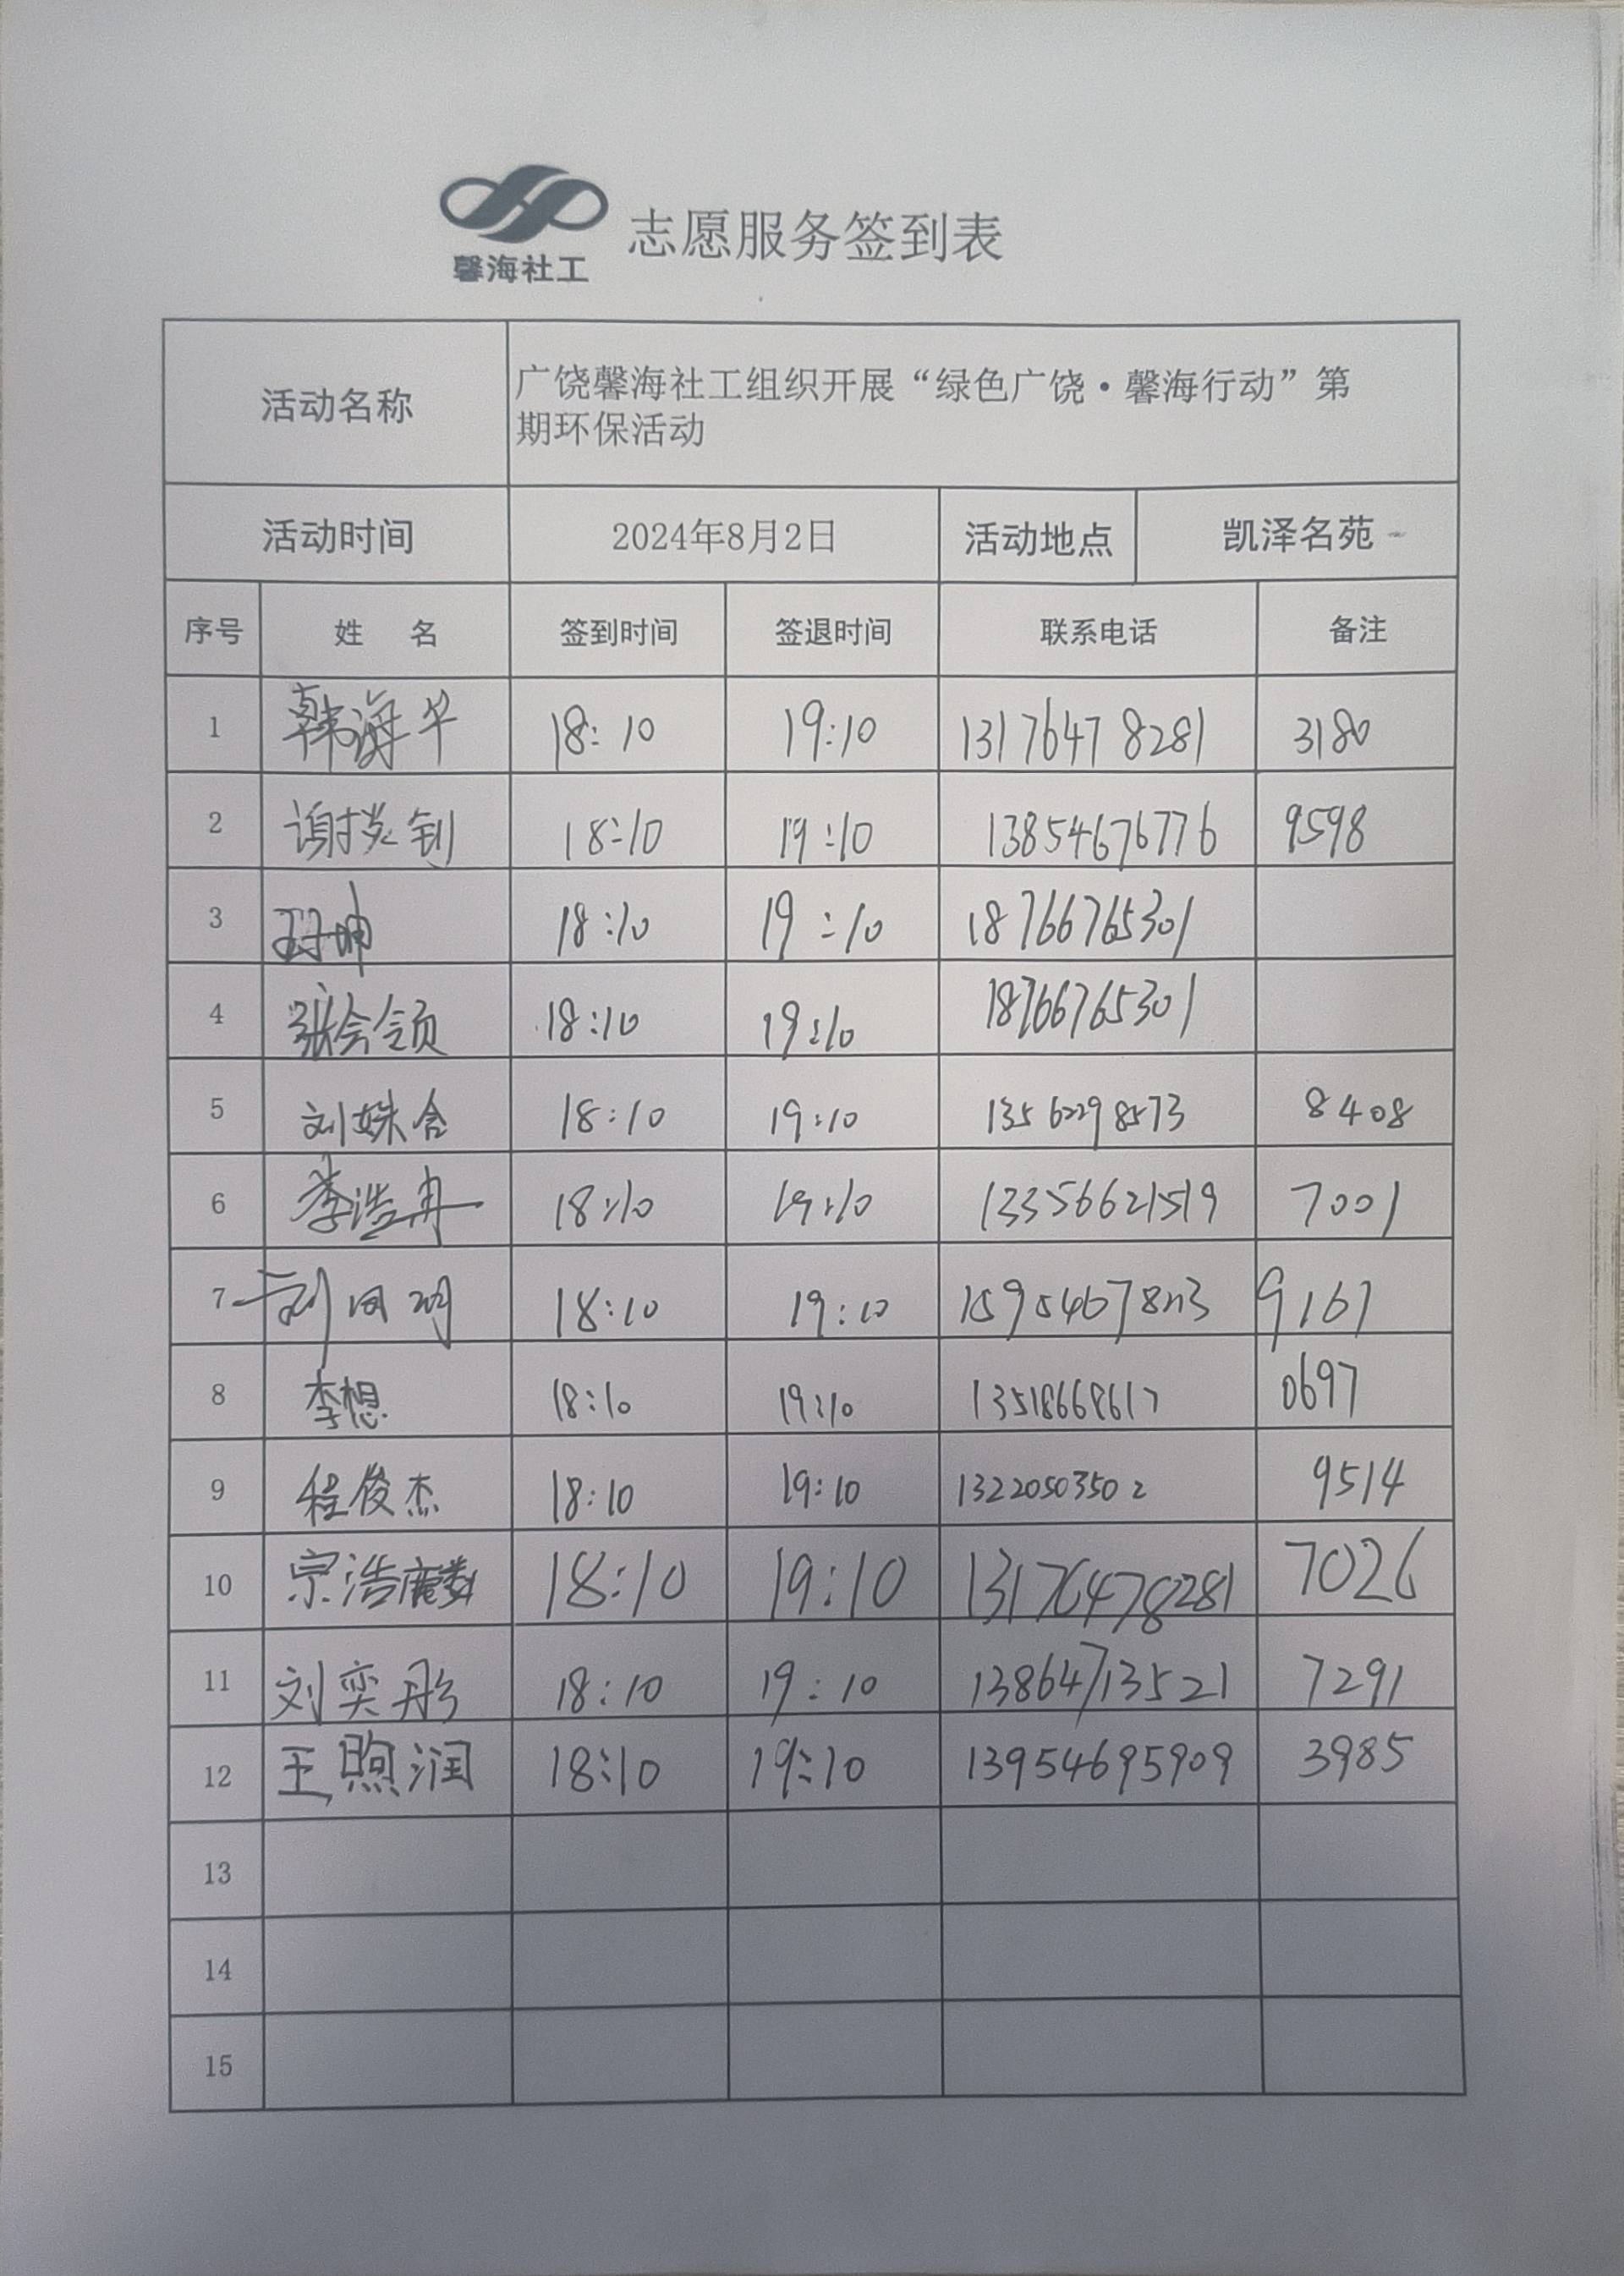 馨海社工
志愿服务签到表
活动名称 广饶馨海社工组织开展“绿色广饶·馨海行动”第
期环保活动
活动时间 2024年8月2日 活动地点 凯泽名苑
序号 姓 名 签到时间 签退时间 联系电话 备注
1 韩海华 18:10 19:10 13176478281 3180
2 谢 钊 18:10 19:10 13854676776 9598
3 孙坤 18:10 19:10 18766765301
4 张会领 18:10 19:10 18766765301
5 刘姝含 18:10 19:10 13562298573 8408
6 李浩冉 18:10 19:10 13356621519 7001
7 刘 明 18:10 19:10 9167
8 李想 18:10 19:10 13518668617 0697
9 程俊杰 18:10 19:10 13220503502 9514
10 宗浩麟 18:10 19:10 13176478281 7026
11 刘奕彤 18:10 19:10 13864713521 7291
12 王煦润 18:10 19:10 13954695909 3985
13
14
15